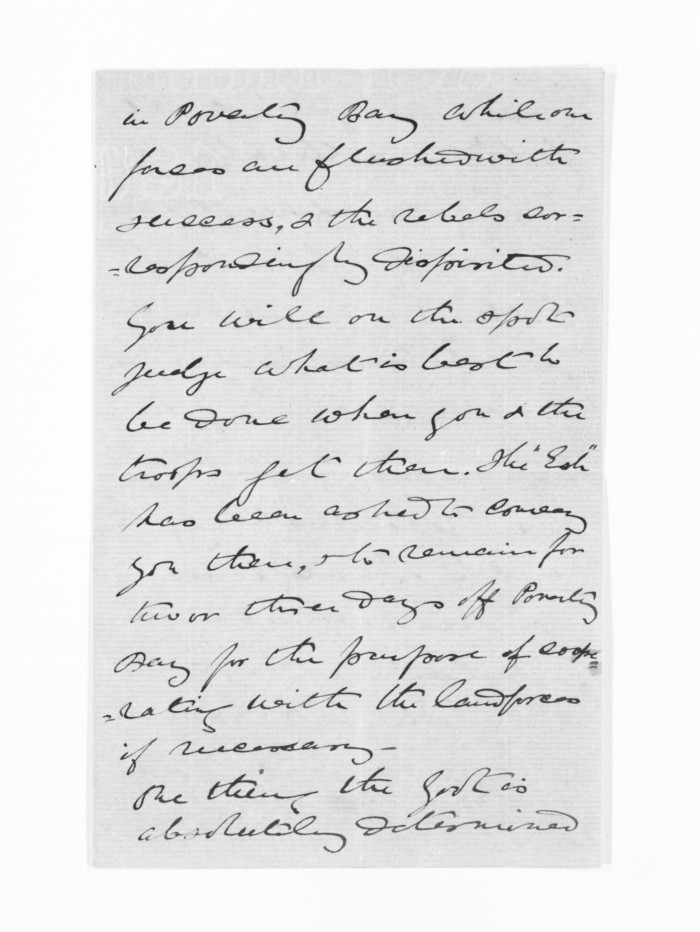 in Poverty Bay while our
forces are flushed with
success, & the rebels cor=
=respondingly dispirited.
You will on the spot
judge what is best to
be done when you & the
troops get there. The "Esk"
has been asked to convey
you there, & to remain for
two or three days off Poverty
Bay for the purpose of coope
=rating with the land forces
if necessary –
One thing the Govt is
absolutely determined